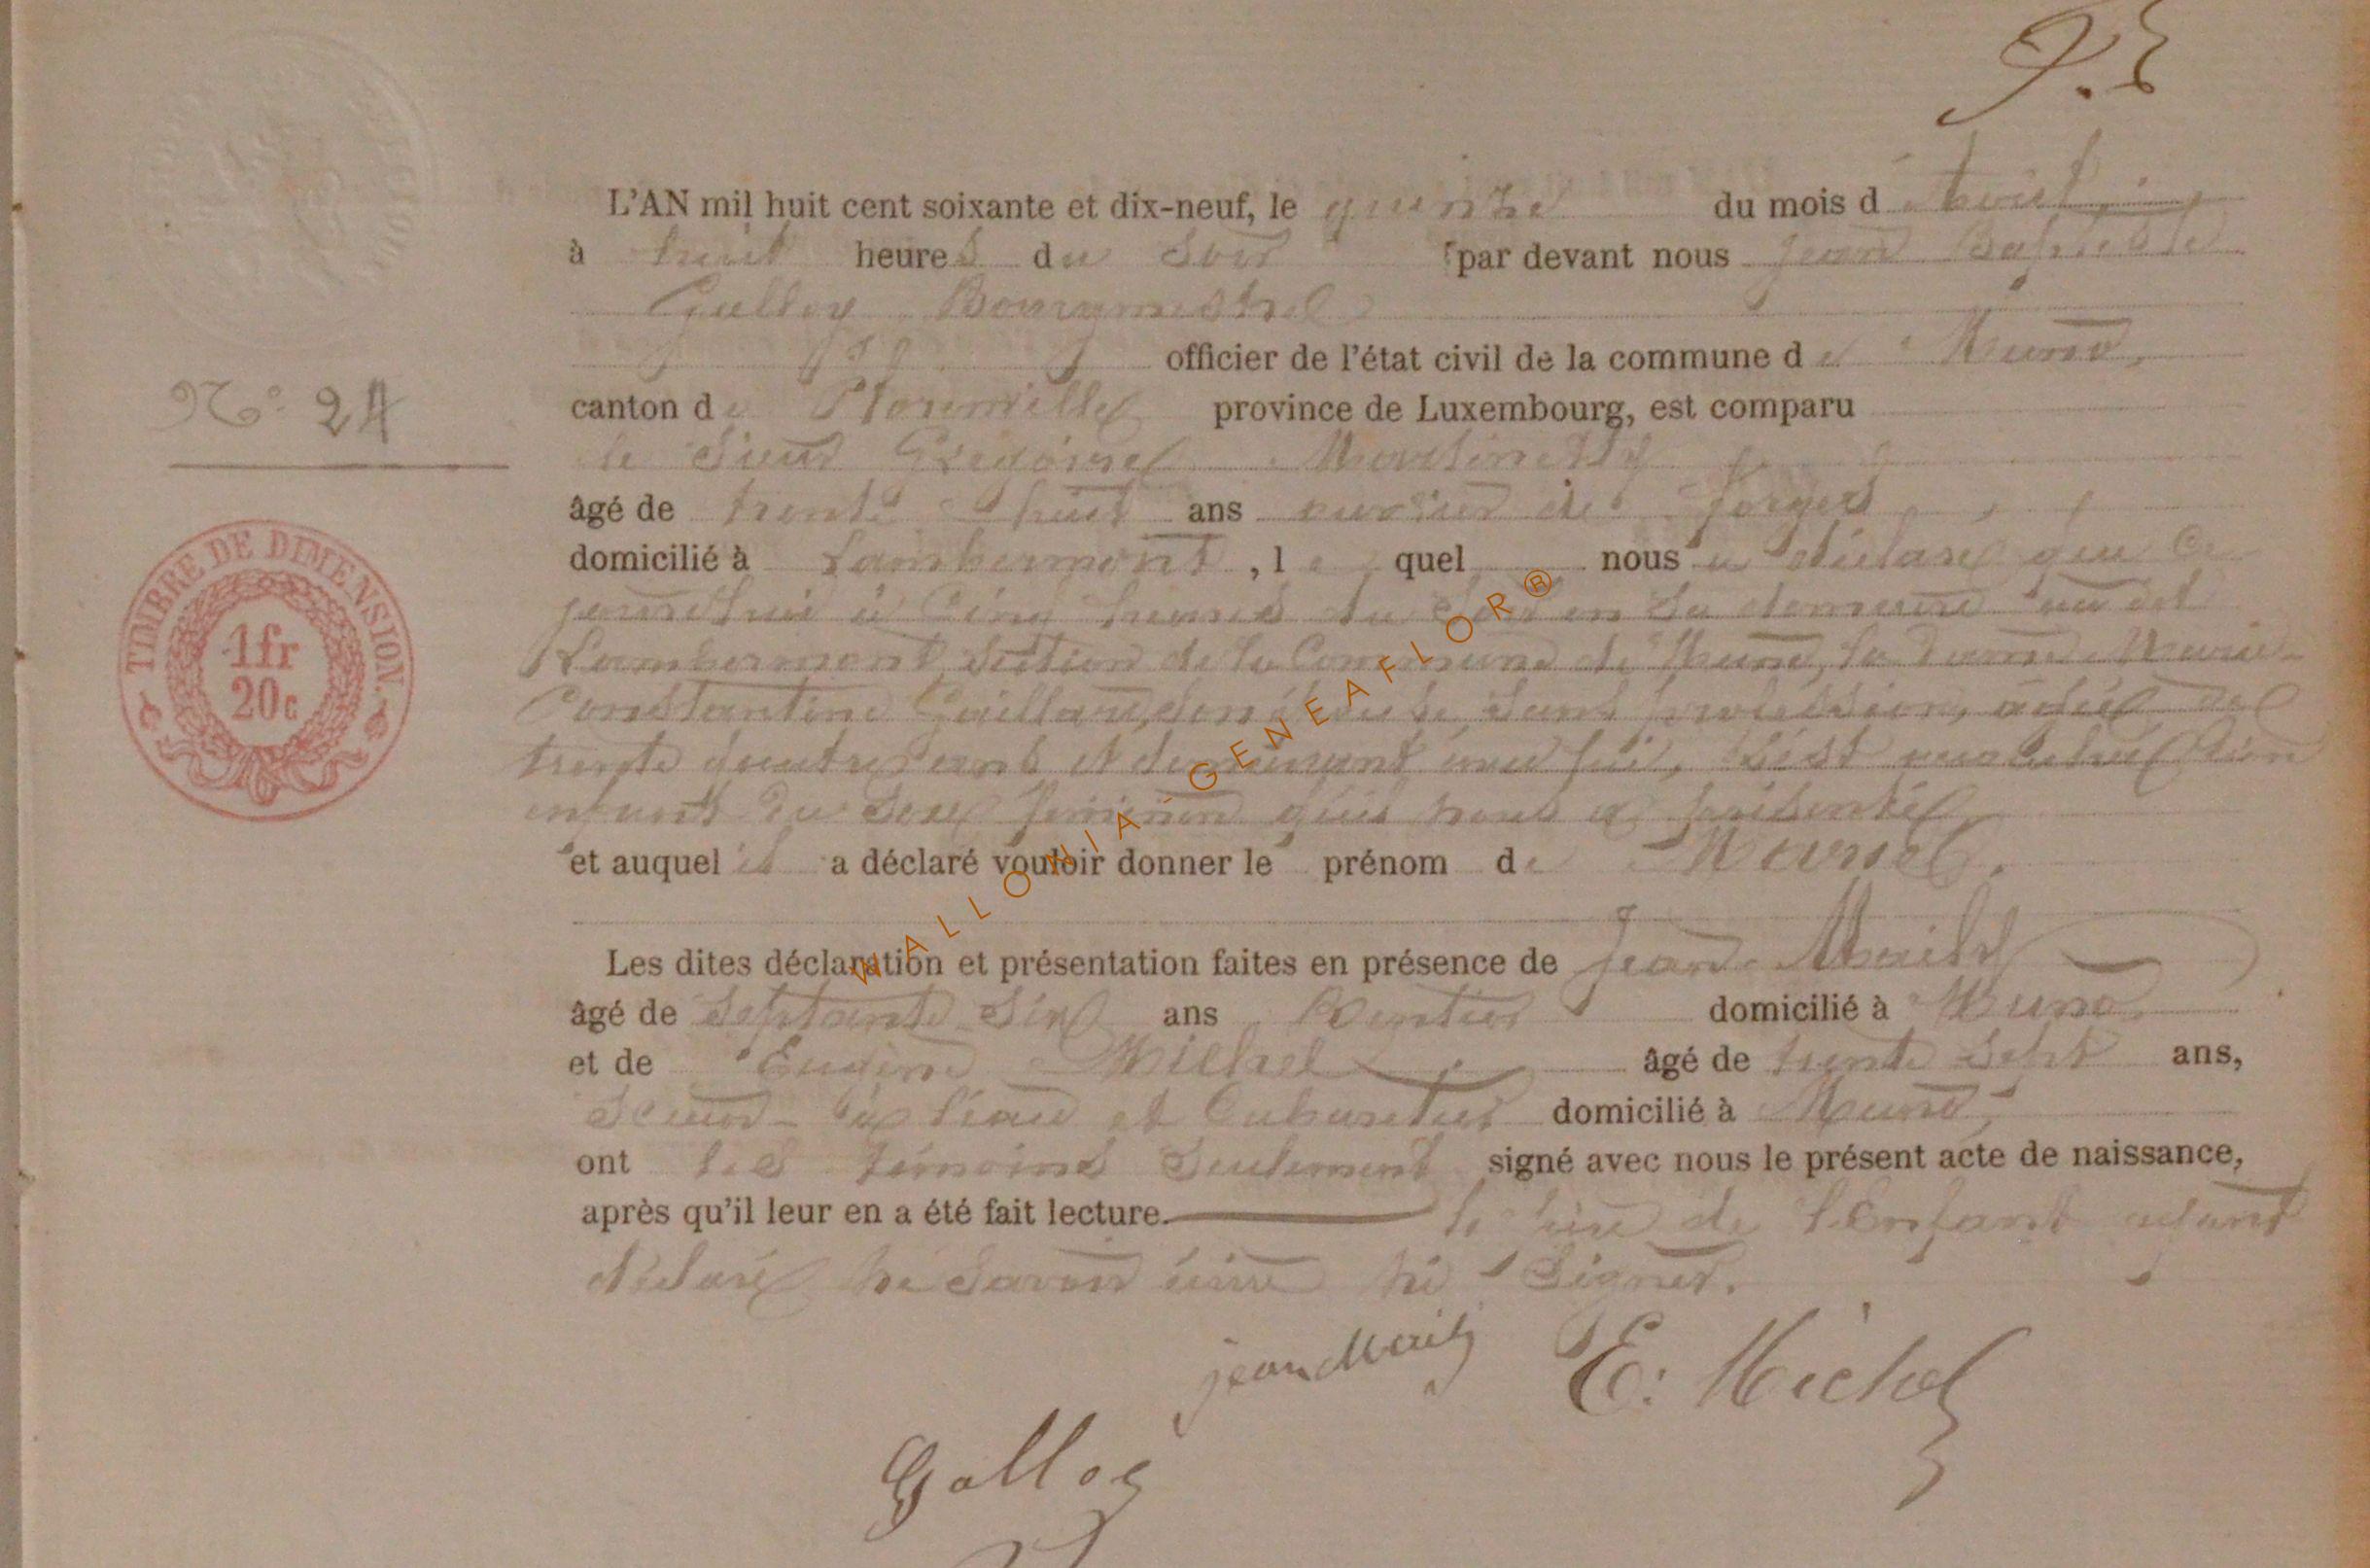 L'AN mil huit cent soixante et dix-neuf, le quinze du mois d'Aout
à huit heures du soir par devant nous Jean Baptiste
Galloy Bourgmestre
officier de l'état civil de la commune de Muno,
N° 24
canton de Florenville province de Luxembourg, est comparu
le Sieur Grégoire
âgé de trente huit ans ouvrier de forges
domicilié à Lambermont, lequel nous a déclaré que ce
jourd'hui à cinq heures du soir en sa demeure au dit
Lambermont, Section de la Commune de Muno, la Dame Marie
Constantine Gaillard, son épouse sans profession, âgée de
trente quatre ans et demeurant avec lui, s'est accouchée d'un
enfant du sexe féminin qu'il nous a présenté
et auquel il a déclaré vouloir donner le prénom de Marie.
Les dites déclaration et présentation faites en présence de Jean
âgé de Septante Six ans Rentier domicilié à Muno
et de Eugène Michel âgé de trente Sept ans,
Scieur à l'eau et Cabaretier domicilié à Muno,
ont les témoins Seulement signé avec nous le présent acte de naissance,
après qu'il leur en a été fait lecture. le père de l'Enfant ayant
déclaré ne savoir écrire ni Signer.
jean
E: Michel
Galloy
TIMBRE DE DIMENSION.
1fr
20c
WALLONIA - GENEAFLOR®